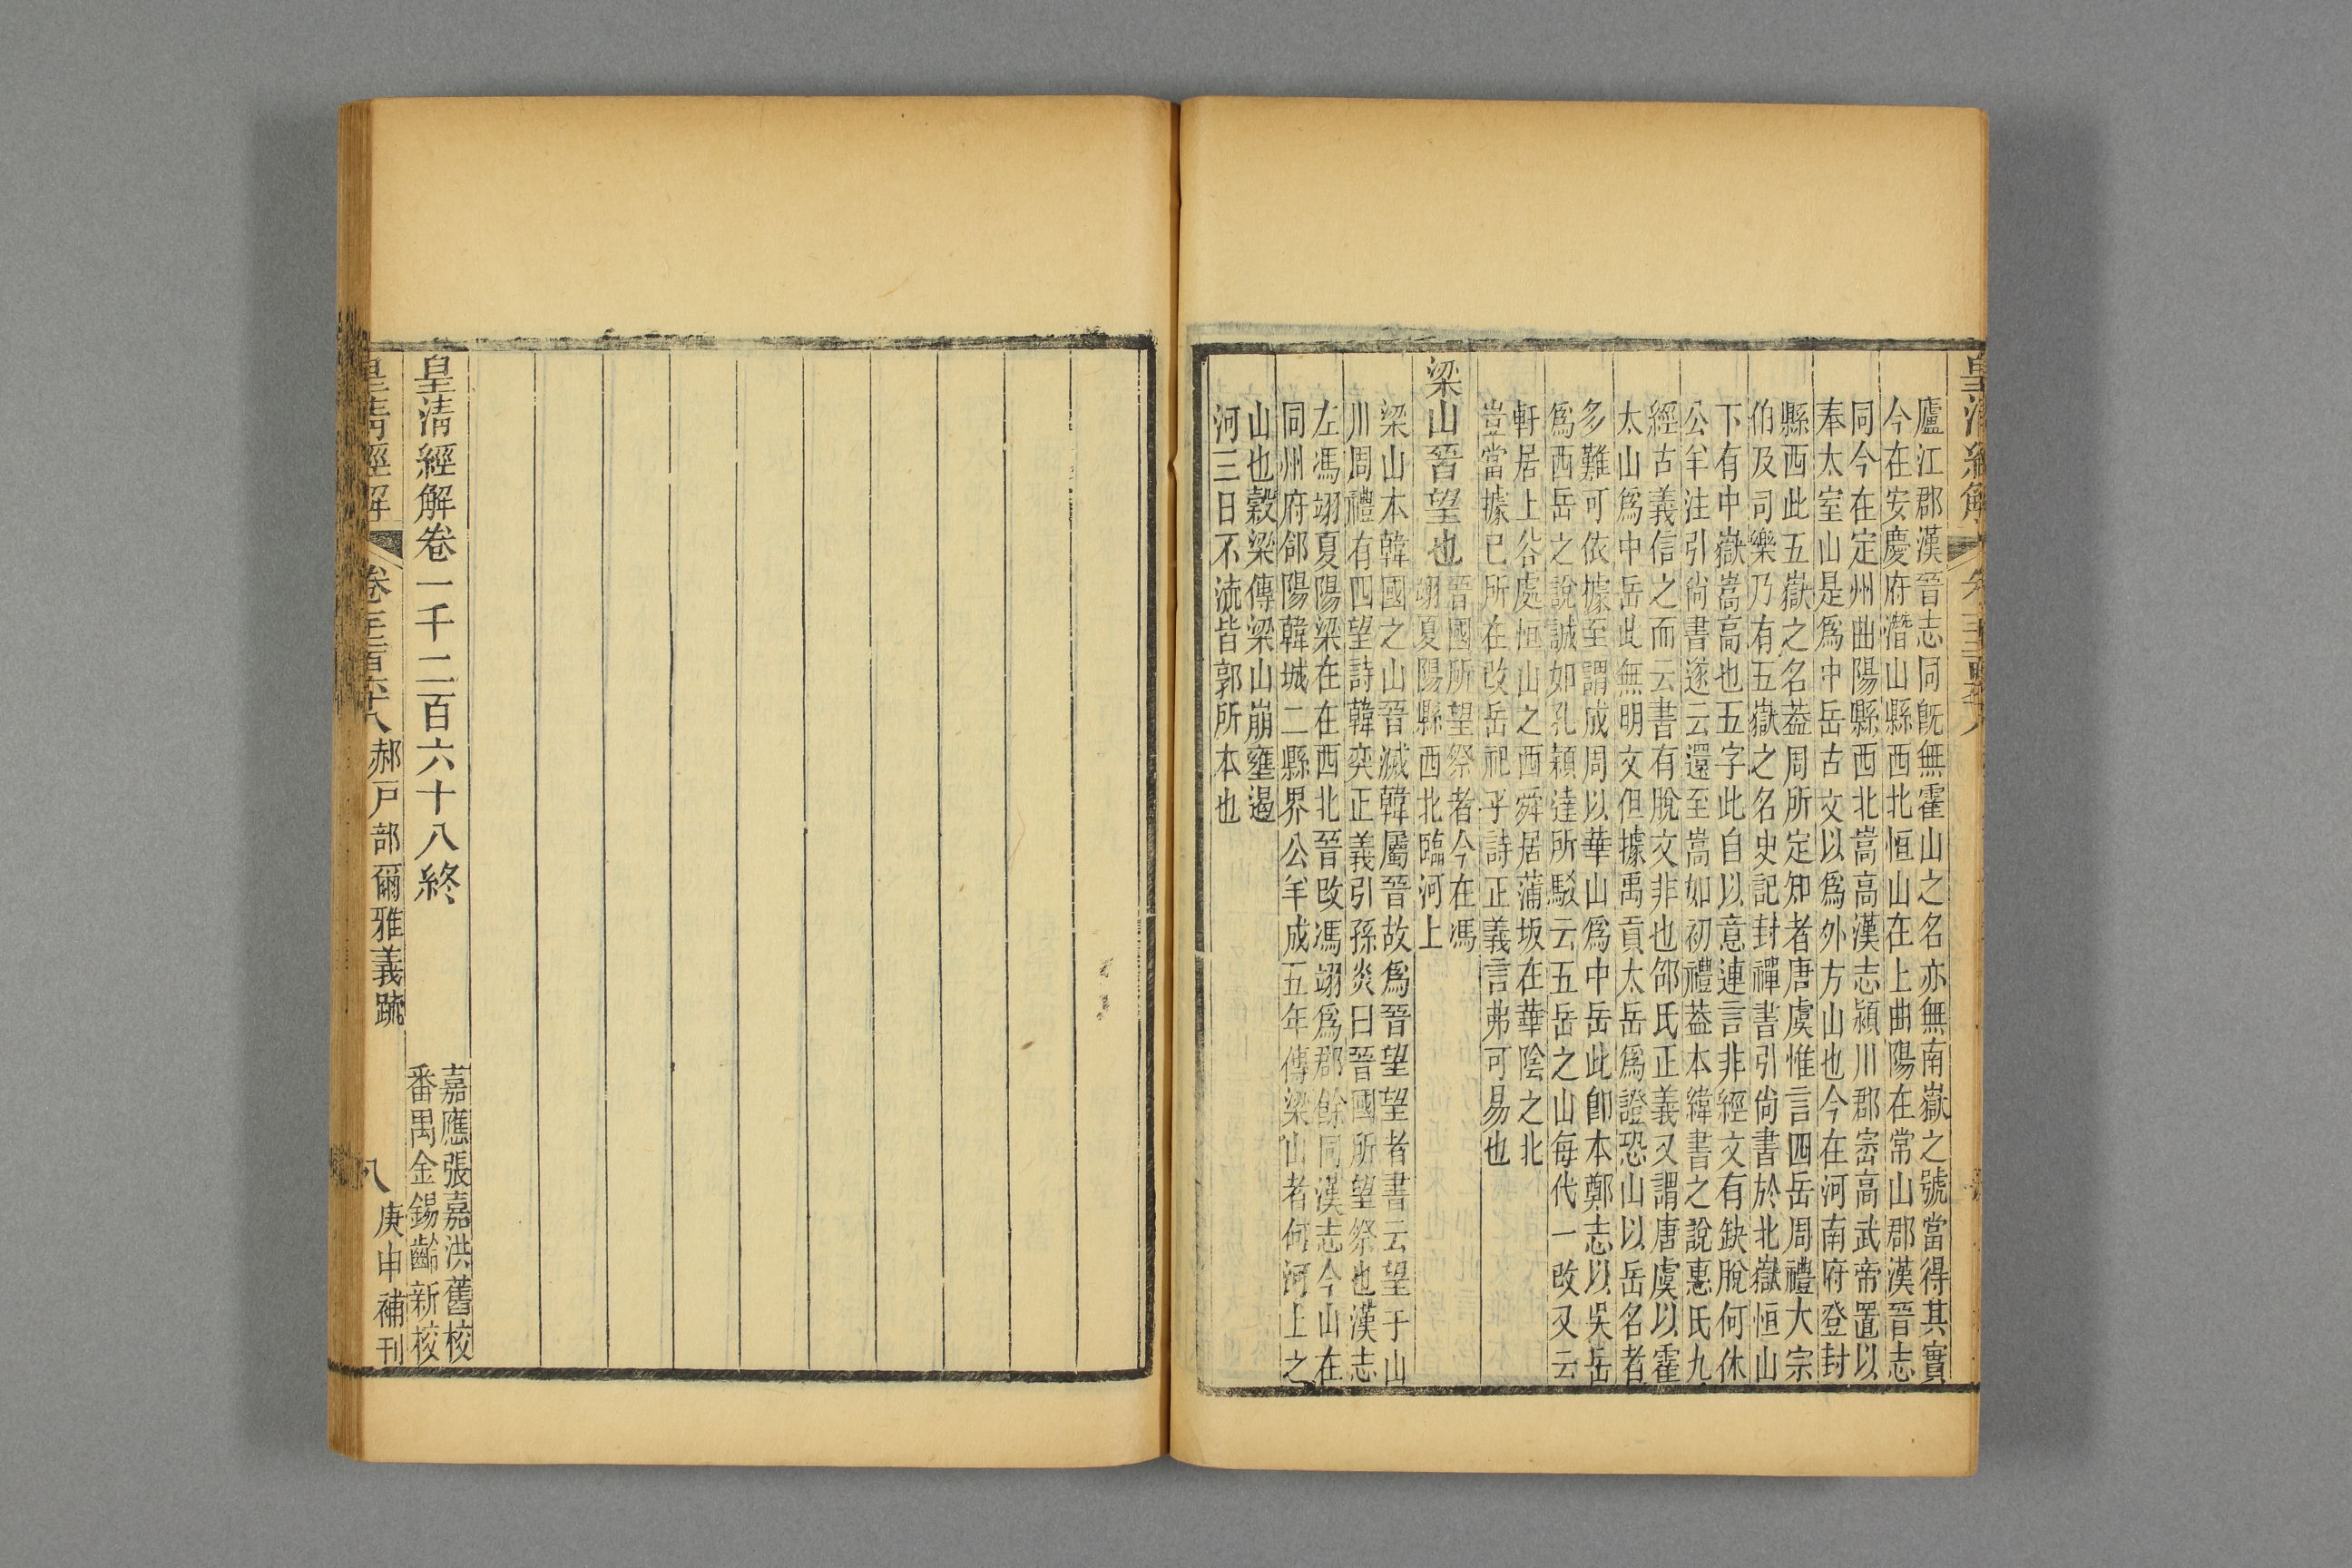 廬江郡漢晉志同旣無霍山之名亦無南嶽之號當得其實
今在安慶府潛山縣西北恒山在上曲陽在常山郡漢晉志
同今在定州曲陽縣西北嵩高漢志潁川郡崈高武帝置以
奉太室山是爲中岳古文以爲外方山也今在河南府登封
縣西此五嶽之名葢周所定知者唐虞惟言四岳周禮大宗
伯及司樂乃有五嶽之名史記封禪書引尙書於北嶽恒山
下有中嶽嵩高也五字此自以意連言非經文有缺脫何休
公羊注引尙書遂云還至嵩如初禮葢本緯書之說惠氏九
經古義信之而云書有脫文非也邵氏正義又謂唐虞以霍
太山爲中岳此無明文但據禹貢太岳爲證恐山以岳名者
多難可依據至謂成周以華山爲中岳此卽本鄭志以吳岳
爲西岳之說誠如孔穎達所駁云五岳之山每代一改又云
軒居上谷處恒山之西舜居蒲坂在華陰之北
豈當據己所在改岳祀乎詩正義言弗可易也
梁山晉望也
晉國所望祭者今在馮
翊夏陽縣西北臨河上
梁山本韓國之山晉滅韓屬晉故爲晉望望者書云望于山
川周禮有四望詩韓奕正義引孫炎曰晉國所望祭也漢志
左馮翊夏陽梁在在西北晉改馮翊爲郡餘同漢志今山在
同州府郃陽韓城二縣界公羊成五年傳梁山者何河上之
山也穀梁傳梁山崩壅遏
河三日不流皆郭所本也
皇清經解卷一千二百六十八終
嘉應張嘉洪舊校
番禺金錫齡新校
皇清經解
郝戶部爾雅義疏
八
庚申補刊